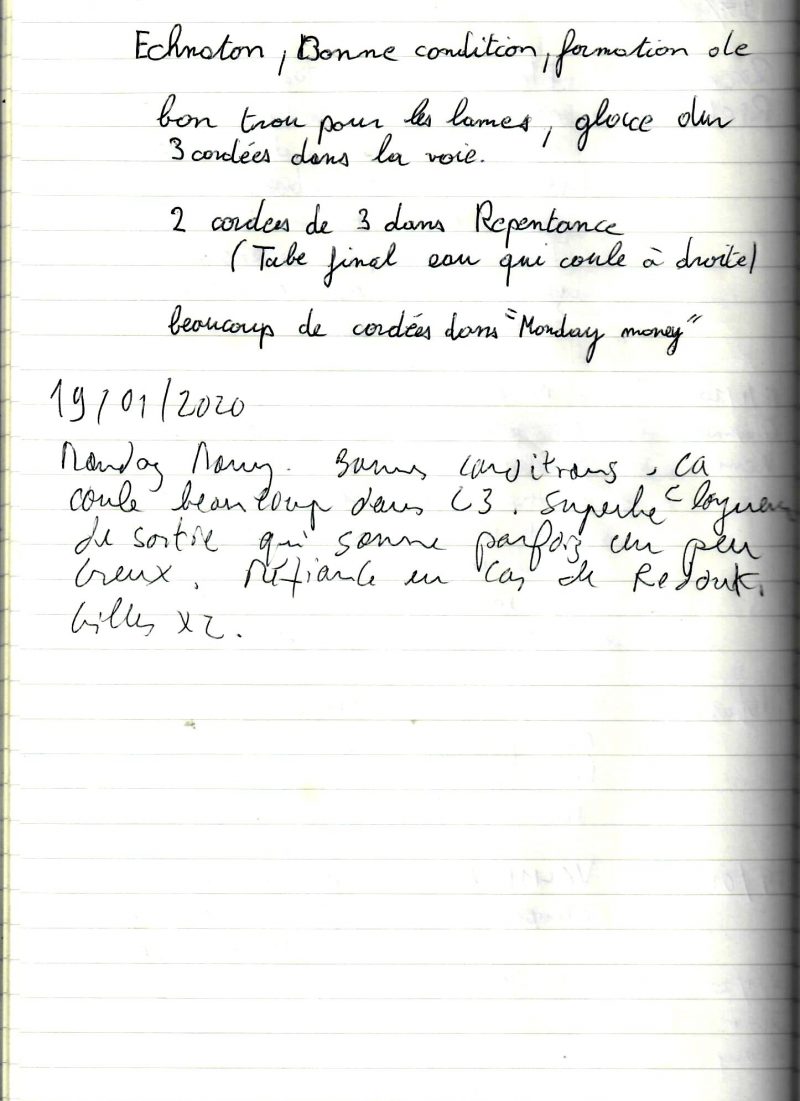 Echnaton, Bonne condition, formation de
bon trou pour les lames, glace dur
3 cordées dans la voie.
2 cordées de 3 dans Repentance
(Tube final eau qui coule à droite)
beaucoup de cordées dans "Monday money"
19/01/2020
Monday Money. Bonnes conditions, ça
coule beaucoup dans L3. Superbe longueur
de sortie qui sonne parfois un peu
creux. Méfiance en cas de Redoux.
Gilles x2.